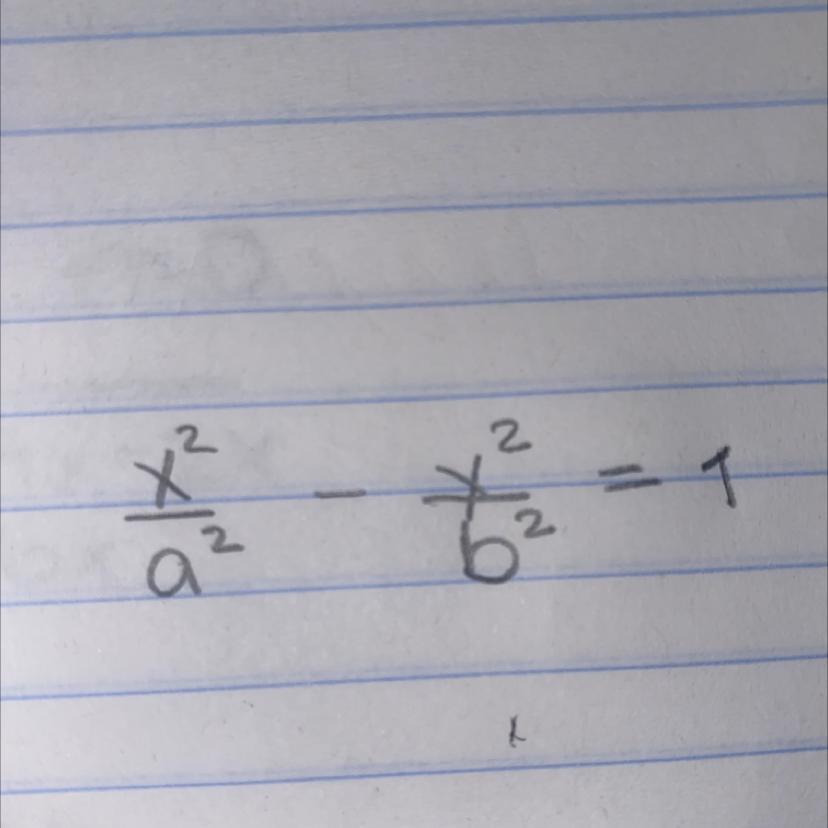 x²/a² - y²/b² = 1